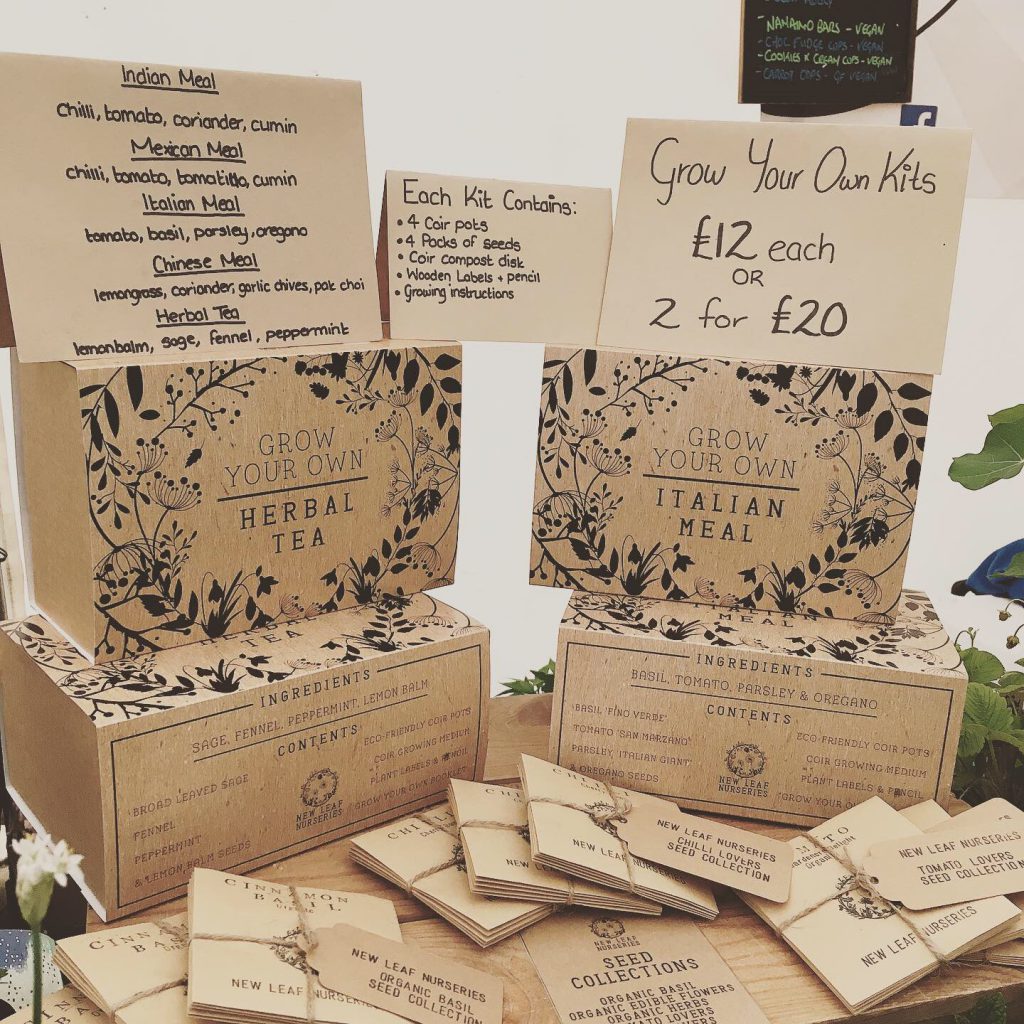 NANAIMO BARS - VEGAN
- CHOC FUDGE CUPS - VEGAN
- COOKIES X CREAM CUPS - VEGAN
- CARROT CUPS - GF VEGAN
f
Indian Meal
chilli, tomato, coriander, cumin
Mexican Meal
chilli, tomato, tomatillo, cumin
Italian Meal
tomato, basil, parsley, oregano
Chinese Meal
lemongrass, coriander, garlic chives, pak choi
Herbal Tea
lemonbalm, sage, fennel, peppermint
Each Kit Contains:
• 4 Coir pots
• 4 Packs of seeds
• Coir compost disk
• Wooden Labels + pencil
• Growing instructions
Grow Your Own Kits
£12 each
OR
2 for £20
GROW
YOUR OWN
HERBAL
TEA
GROW
YOUR OWN
ITALIAN
MEAL
TEA
INGREDIENTS
SAGE, FENNEL, PEPPERMINT, LEMON BALM
CONTENTS
'BROAD LEAVED' SAGE
FENNEL
PEPPERMINT
& LEMON BALM SEEDS
NEW LEAF
NURSERIES
ECO-FRIENDLY COIR POTS
COIR GROWING MEDIUM
PLANT LABELS & PENCIL
'GROW YOUR OWN' BOOKLET
MEAL
INGREDIENTS
BASIL, TOMATO, PARSLEY & OREGANO
CONTENTS
BASIL 'FINO VERDE'
TOMATO 'SAN MARZANO'
PARSLEY, ITALIAN GIANT'
& OREGANO SEEDS
NEW LEAF
NURSERIES
ECO-FRIENDLY COIR POTS
COIR GROWING MEDIUM
PLANT LABELS & PENCIL
'GROW YOUR
NEW LEAF NURSERIES
CHILLI LOVERS
SEED COLLECTION
NEW LEAF NURSERIES
TOMATO LOVERS
SEED COLLECTION
NEW LEAF NURSERIES
CINNAMON
BASIL
Organic
NEW LEAF NURSERIES
NEW LEAF NURSERIES
ORGANIC BASIL
SEED COLLECTION
NEW LEAF
NURSERIES
SEED
COLLECTIONS
ORGANIC BASIL
ORGANIC EDIBLE FLOWERS
ORGANIC HERBS
TOMATO LOVERS